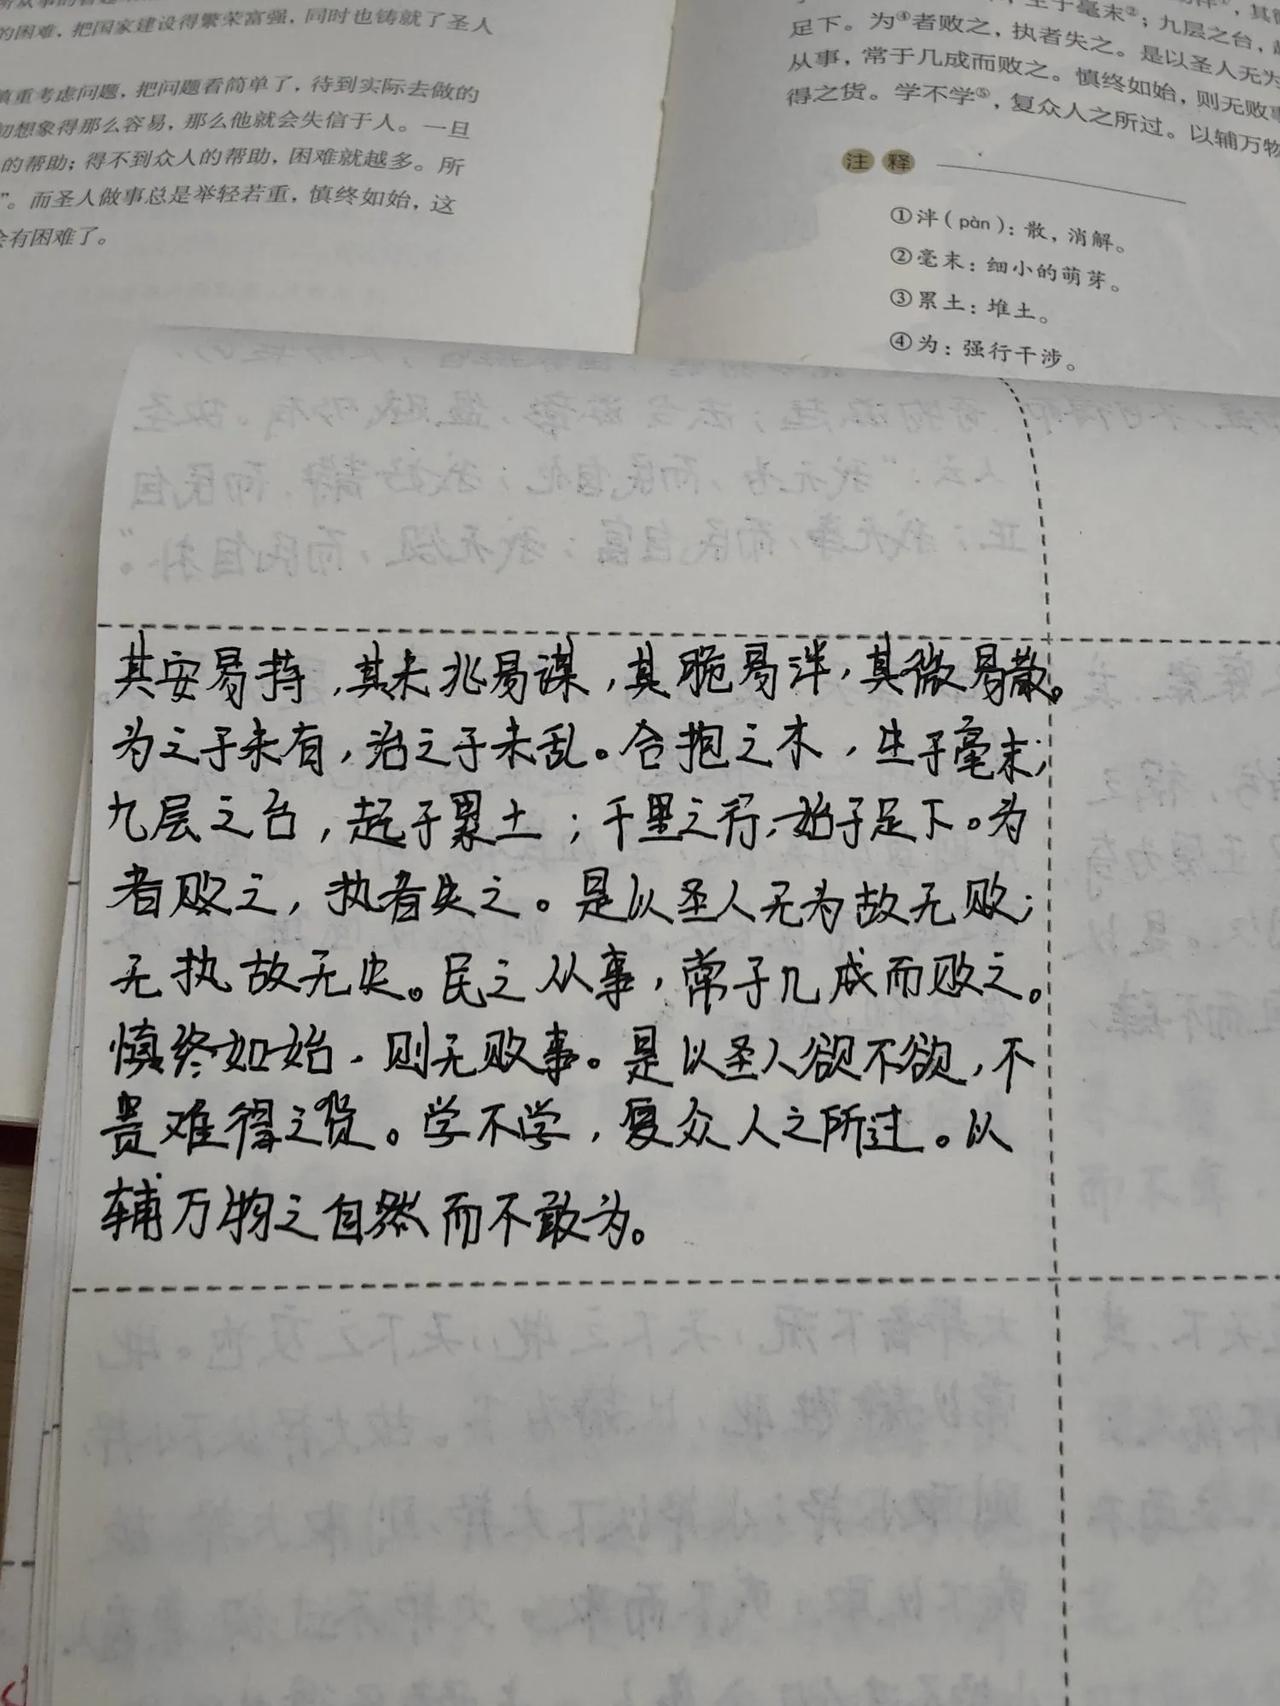 的困难，把国家建设得繁荣富强，同时也铸就了圣人
慎重考虑问题，把问题看简单了，待到实际去做的
初想象得那么容易，那么他就会失信于人。一旦
的帮助；得不到众人的帮助，困难就越多。所
”。而圣人做事总是举轻若重，慎终如始，这
会有困难了。
生于毫末②；九层之台，
足下。为④者败之，执者失之。是以圣人无为
从事，常于几成而败之。慎终如始，则无败事
得之货。学不学⑤，复众人之所过。以辅万物
注释
①泮（pàn）：散，消解。
②毫末：细小的萌芽。
③累土：堆土。
④为：强行干涉。
其安易持，其未兆易谋，其脆易泮，其微易散。
为之于未有，治之于未乱。合抱之木，生于毫末；
九层之台，起于累土；千里之行，始于足下。为
者败之，执者失之。是以圣人无为故无败；
无执故无失。民之从事，常于几成而败之。
慎终如始，则无败事。是以圣人欲不欲，不
贵难得之货。学不学，复众人之所过。以
辅万物之自然而不敢为。